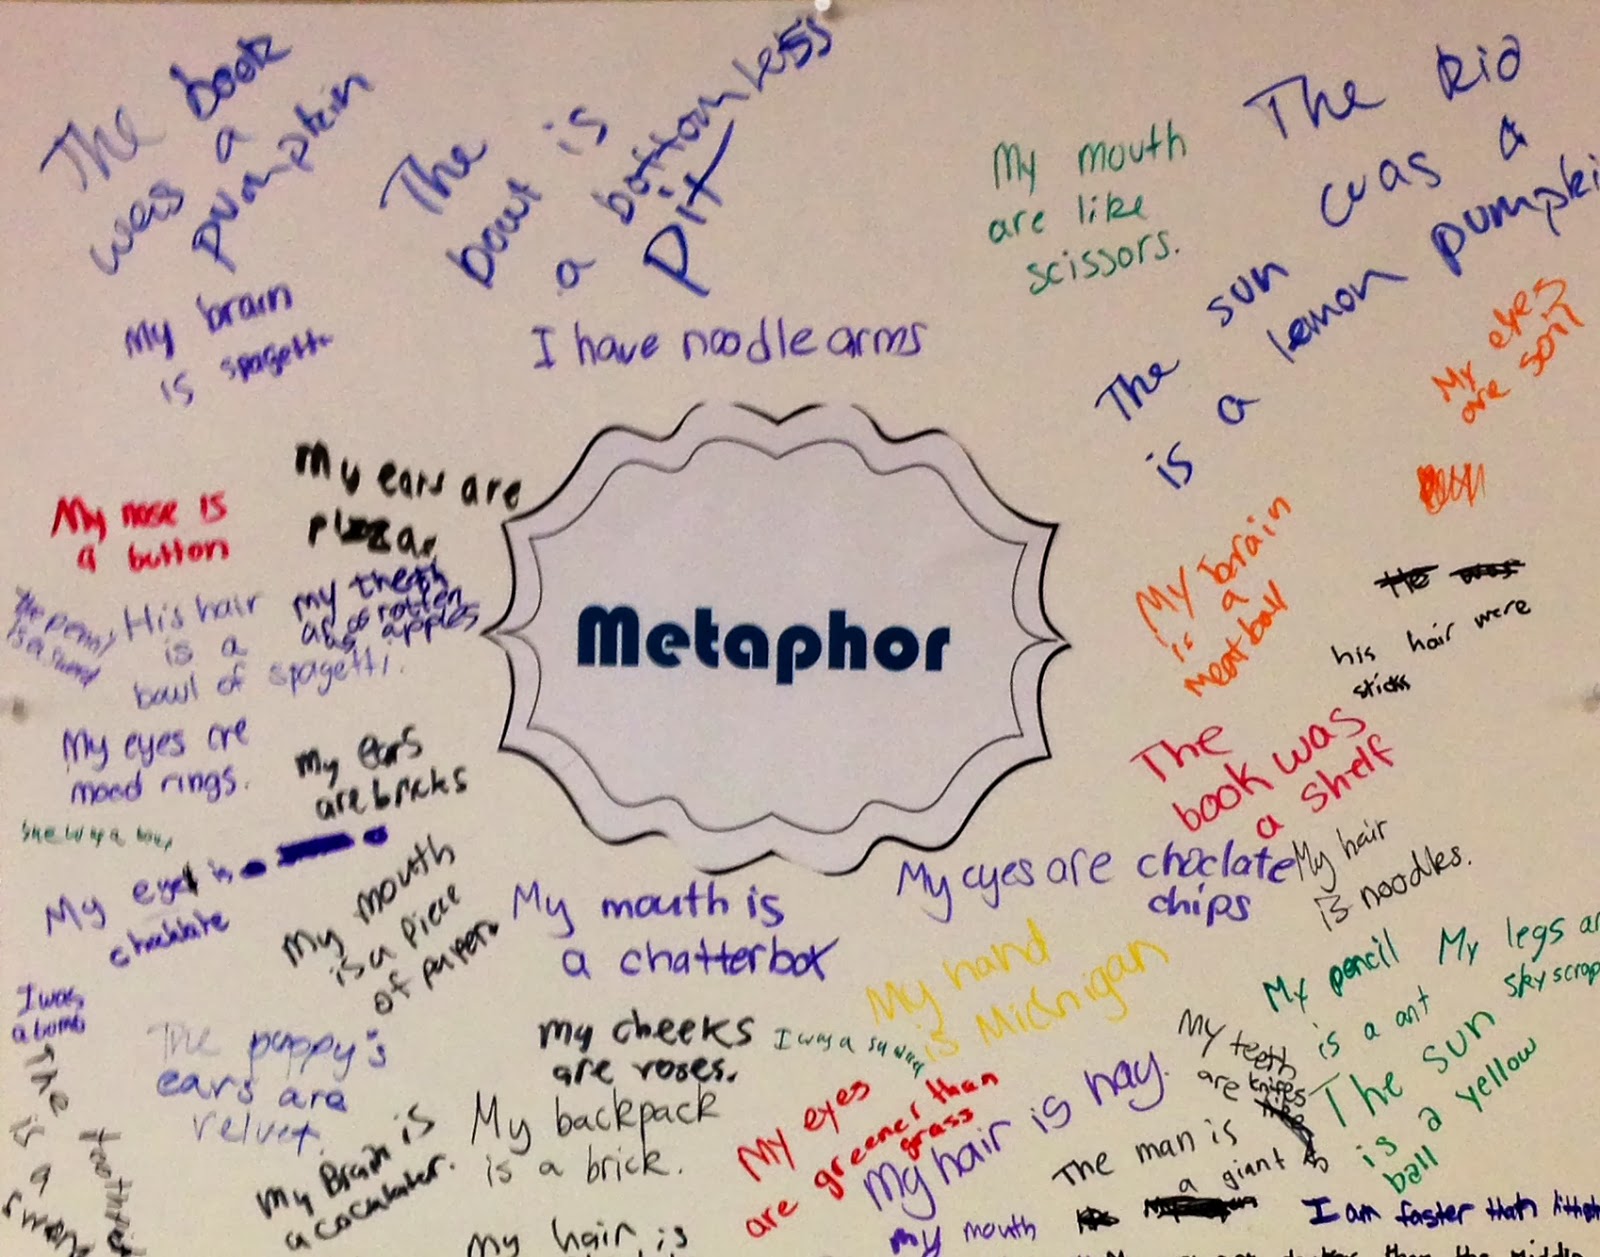 The book
was a
pumpkin
The
bowl is
a bottomless
pit
My mouth
are like
scissors.
The kid
was a
pumpki
The sun
is a lemon
My brain
is spagetti
I have noodle arms
My eyes
are soil
My nose is
a button
My ears are
pizza
My brain
is a
meatball
He was
his hair were
sticks
His hair
is a
bowl of spagetti.
my theeth
are as rotten
as apples
The pencil
is a sword
Metaphor
My eyes are
mood rings.
my ears
are bricks
The
book was
a shelf
My hair
is noodles.
My eyes is
chocklate
My mouth
is a piece
of paper.
My mouth is
a chatterbox
My eyes are choclate
chips
My hand
is Michigan
My pencil
is a ant
My legs ar
skyscrap
I was
a bomb
The puppy's
ears are
velvet.
my cheeks
are roses.
I was a
My teeth
are knifes
like
The sun
is a yellow
ball
The
is a
My Brain is
a
My backpack
is a brick.
My eyes
are greener than
grass
My hair is hay.
The man is
a giant
my hair is
my mouth
I am faster than